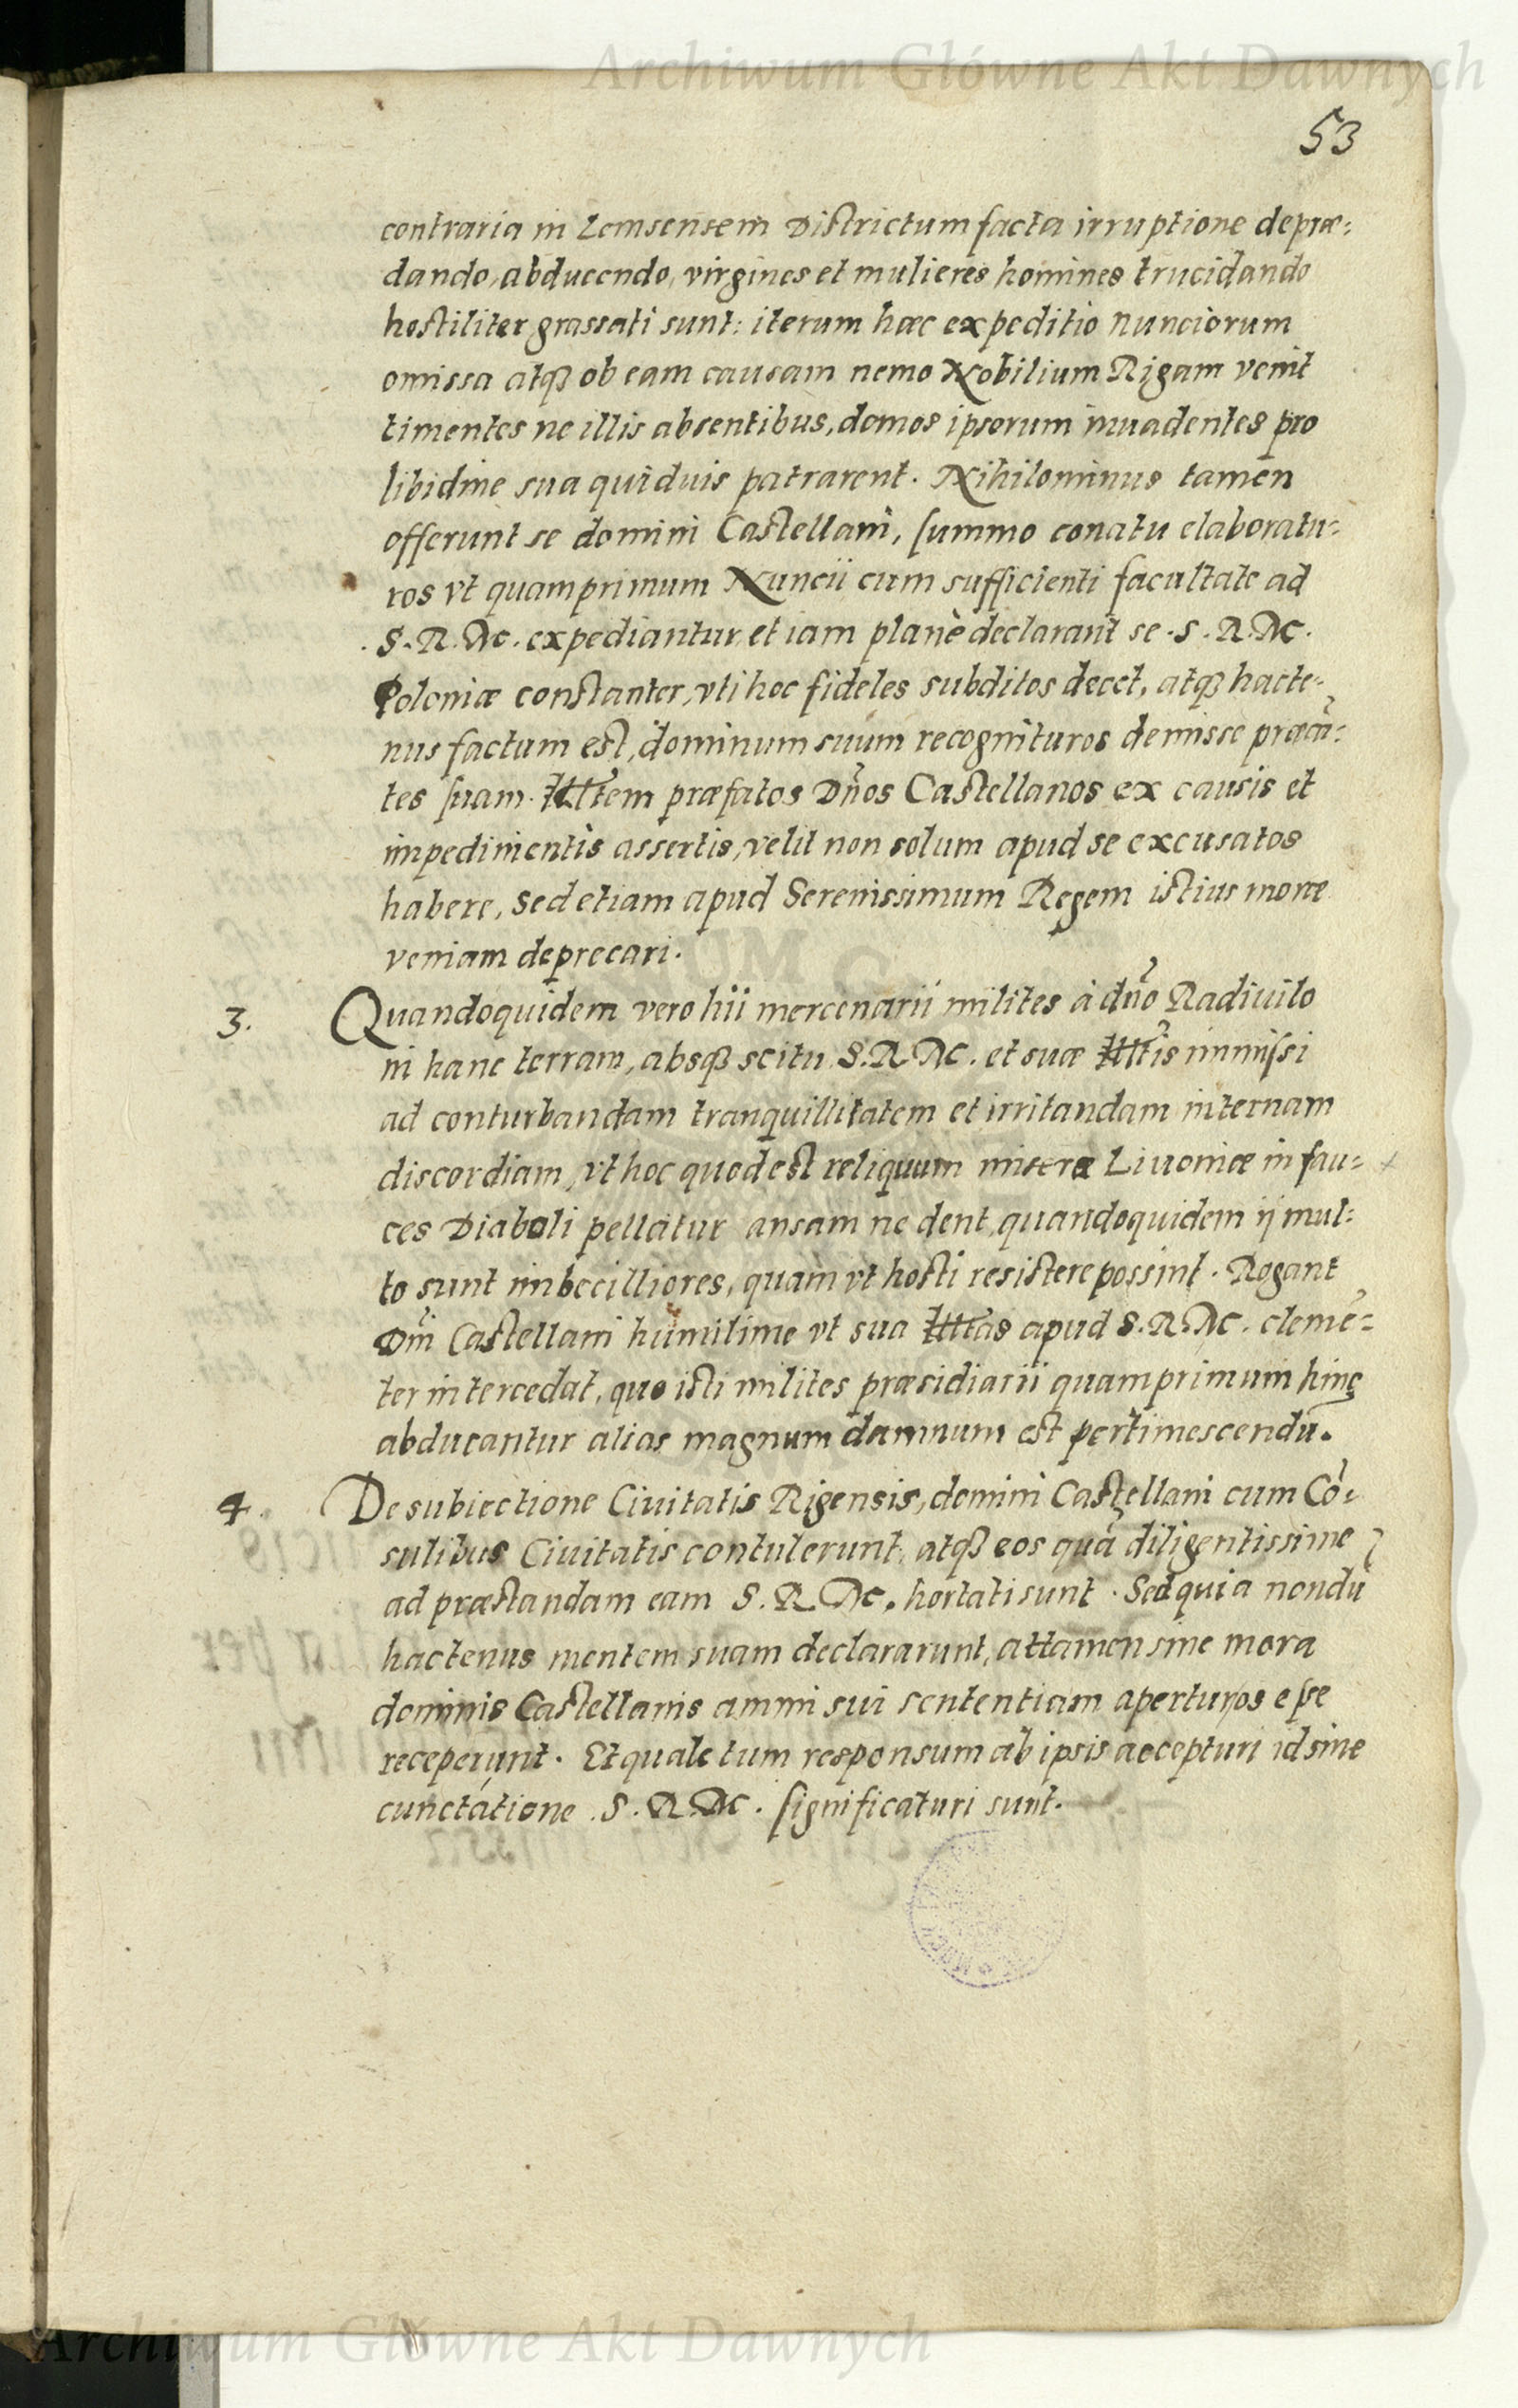 Archiwum Główne Akt Dawnych
53
contraria in Lemsensem Districtum facta irruptione depræ=
dando, abducendo, virgines et mulieres homines trucidando
hostiliter grassati sunt: iterum hæc expeditio Nunciorum
omissa atq₃ ob eam causam nemo Nobilium Rigam venit
timentes ne illis absentibus, domos ipsorum inuadentes pro
libidine sua quiduis patrarent. Nihilominus tamen
offerunt se domini Castellani, summo conatu elaboratu=
ros vt quamprimum Nuncii cum sufficienti facultate ad
S. R. M. expediantur, et iam planè declarant se S. R. M.
Poloniæ constanter, vti hoc fideles subditos decet, atq₃ hacte=
nus factum est, dominum suum recognituros demisse præcā=
tes suam Illtem præfatos Dños Castellanos ex causis et
impedimentis assertis, velit non solum apud se excusatos
habere, sed etiam apud Serenissimum Regem istius moræ
veniam deprecari.
3. Quandoquidem vero hii mercenarii milites à dño Radiuilo
in hanc terram, absq₃ scitu S. R. M. et suæ Illtis immissi
ad conturbandam tranquillitatem et irritandam internam
discordiam, vt hoc quod est reliquum miseræ Liuoniæ in fau=
ces Diaboli pellatur ansam ne dent, quandoquidem ij mul=
to sunt imbecilliores, quam vt hosti resistere possint. Rogant
Dñi Castellani humilime vt sua Illtas apud S. R. M. clemē=
ter intercedat, quo isti milites præsidiarii quamprimum hinc
abducantur alias magnum damnum est pertimescendū.
4. De subiectione Ciuitatis Rigensis, domini Castellani cum Cō=
sulibus Ciuitatis contulerunt, atq₃ eos quā diligentissime
ad præstandam eam S. R. M. hortati sunt. Sed quia nondū
hactenus mentem suam declararunt, attamen sine mora
dominis Castellanis animi sui sententiam aperturos esse
receperunt. Et quale tum responsum ab ipsis accepturi id sine
cunctatione S. R. M. significaturi sunt.
Archiwum Główne Akt Dawnych